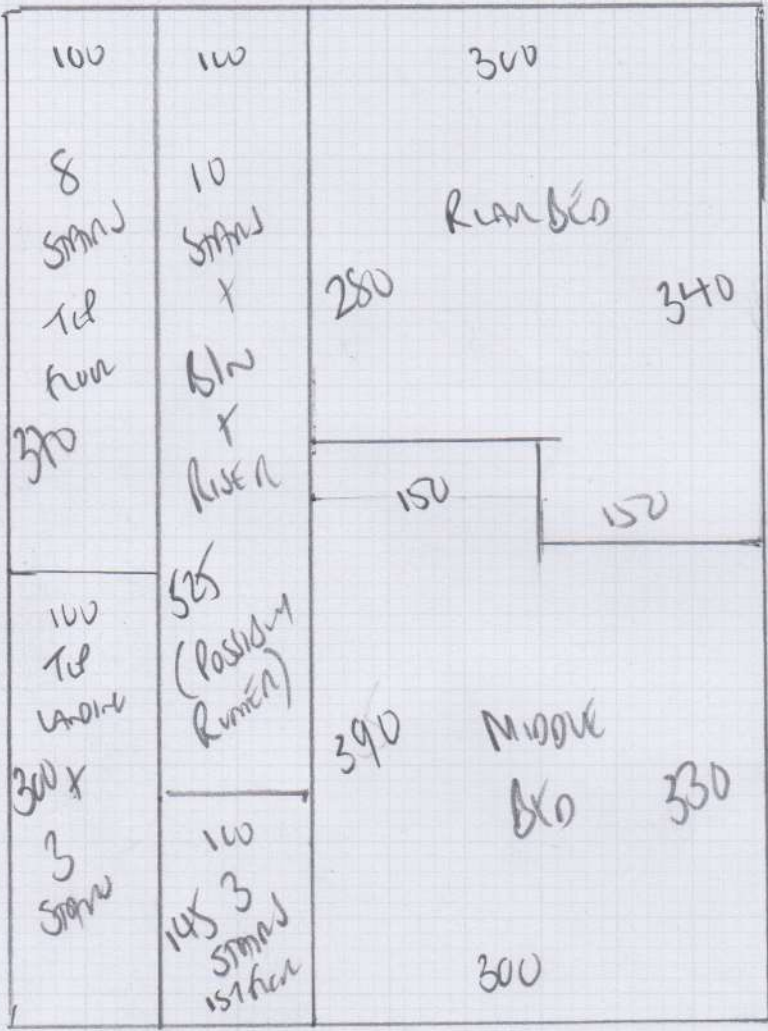 100
8
STAIRS
TOP
FLOOR
370
100
TOP
LANDING
300 +
3
STAIRS
100
10
STAIRS
+
B/N
+
RISER
525
(POSSIBLY
RUNNER)
100
145 3
STAIRS
1ST FLOOR
300
REAR BED
280
340
150
150
390
MIDDLE
BED
330
300